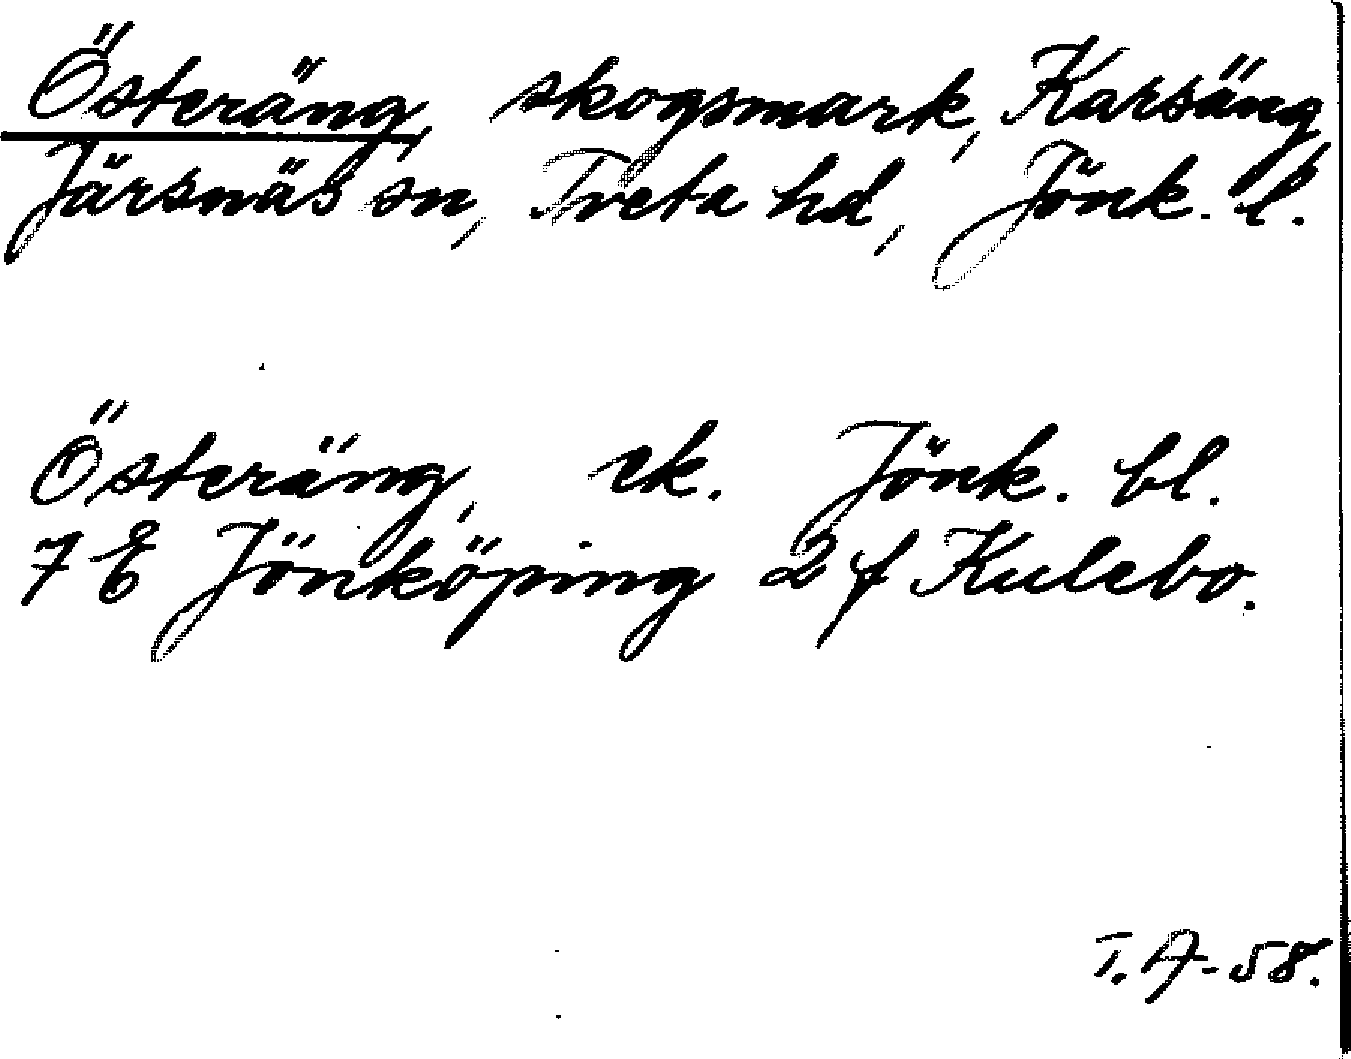 Österäng, skogsmark, Karsäng
Järsnäs sn, Tveta hd, Jönk. l.
Österäng, ek. Jönk. bl.
7 E Jönköping 2 f Kulebo.
T. A-58.